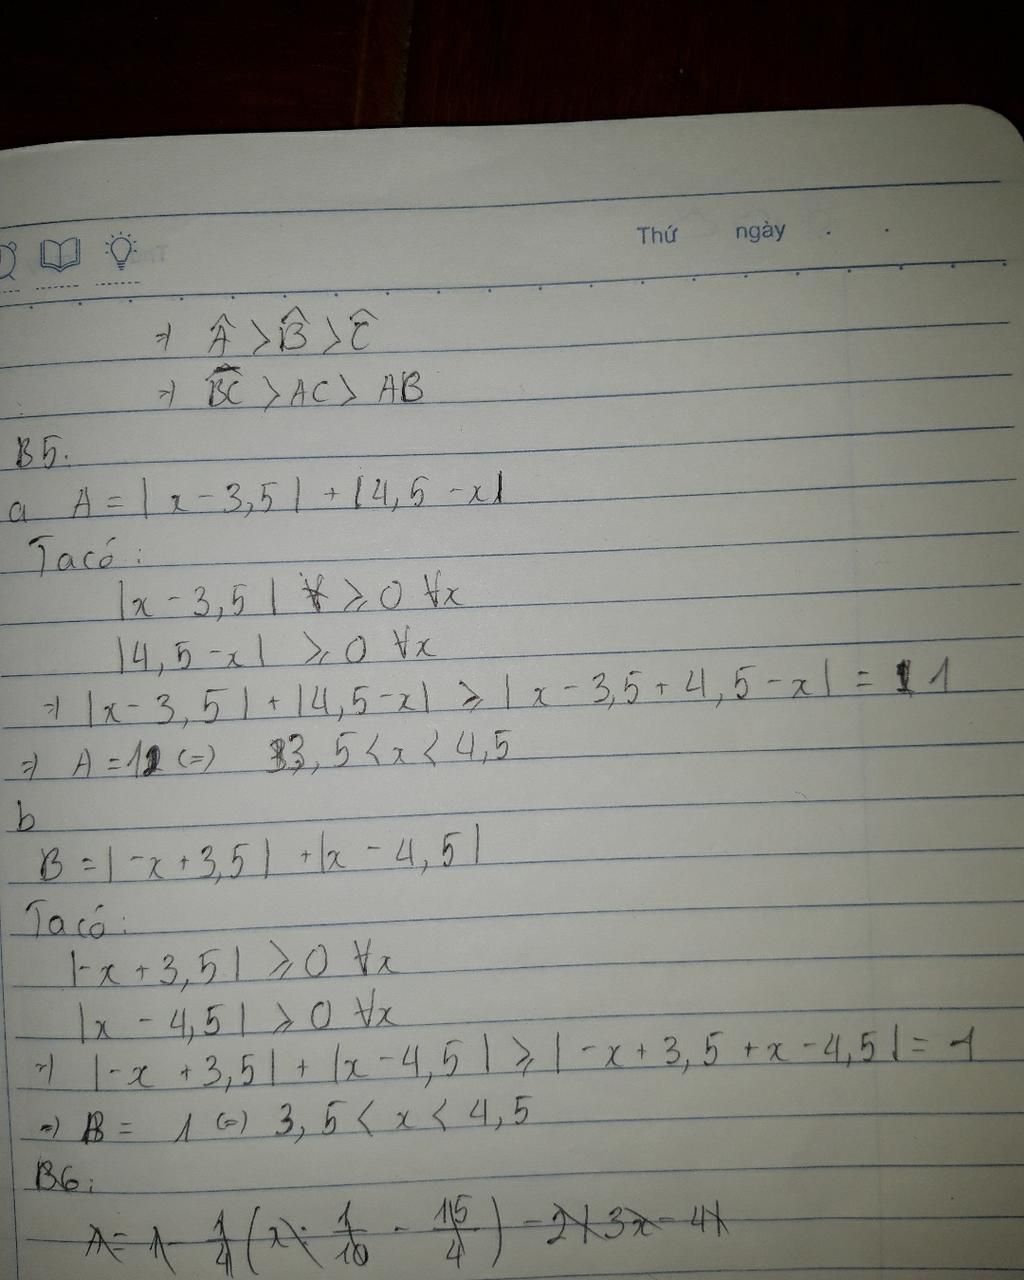 Thứ ngày . .
=> Â > B̂ > Ĉ
=> BC > AC > AB
B5.
a A = |x - 3,5| + |4,5 - x|
Ta có:
|x - 3,5| ≥ 0 ∀x
|4,5 - x| ≥ 0 ∀x
=> |x - 3,5| + |4,5 - x| ≥ |x - 3,5 + 4,5 - x| = 1
=> A = 1 (=) 3,5 < x < 4,5
b
B = |-x + 3,5| + |x - 4,5|
Ta có:
|-x + 3,5| ≥ 0 ∀x
|x - 4,5| ≥ 0 ∀x
=> |-x + 3,5| + |x - 4,5| ≥ |-x + 3,5 + x - 4,5| = 1
=> B = 1 (=) 3,5 < x < 4,5
B6: